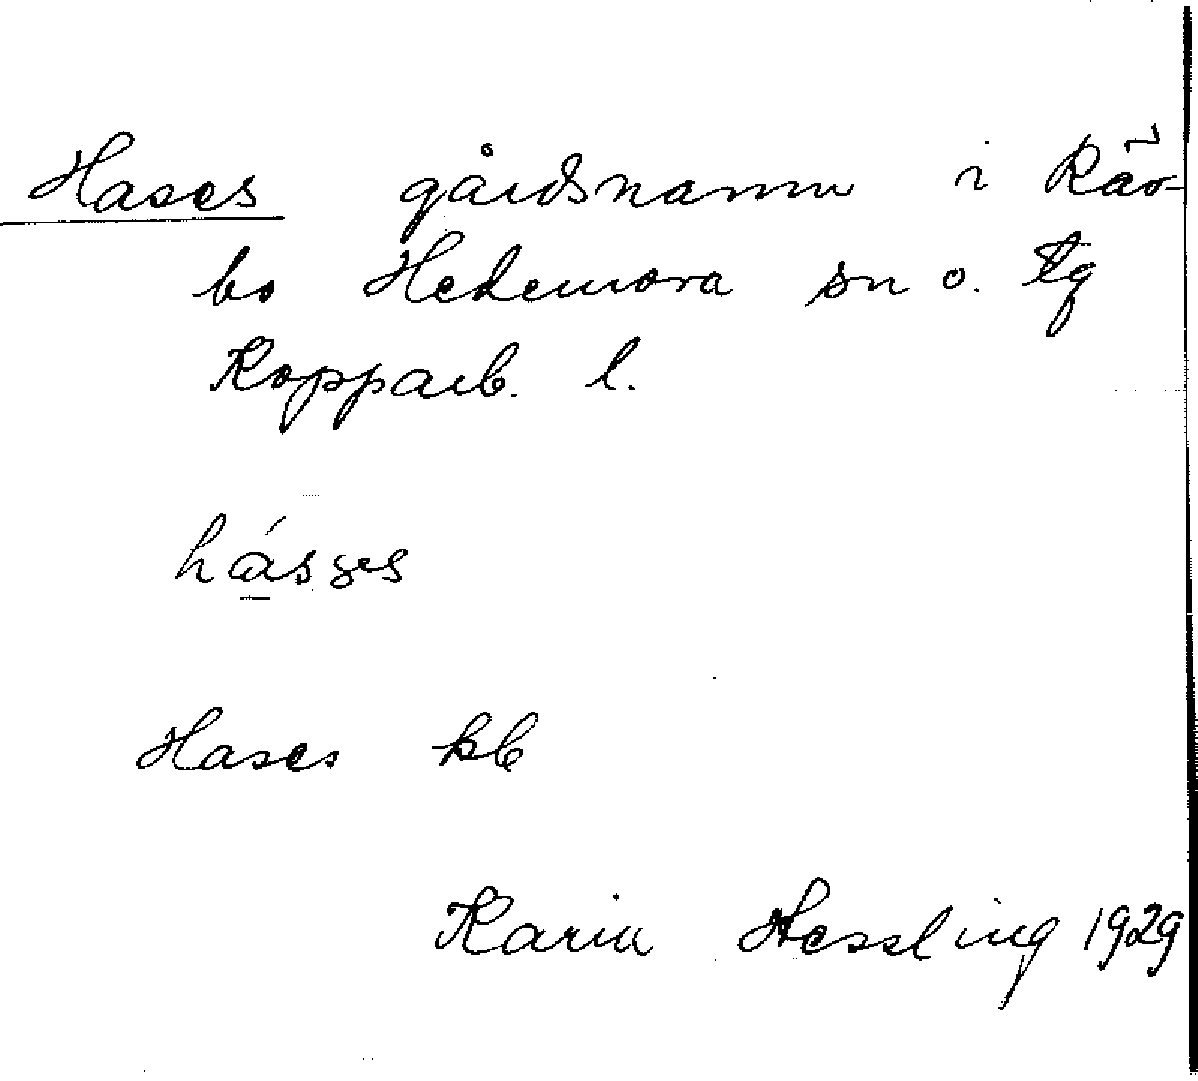 Hases gårdsnamn i Räv-
bo Hedemora sn o. tg
Kopparb. l.
háses
Hases kb
Karin Hessling 1929